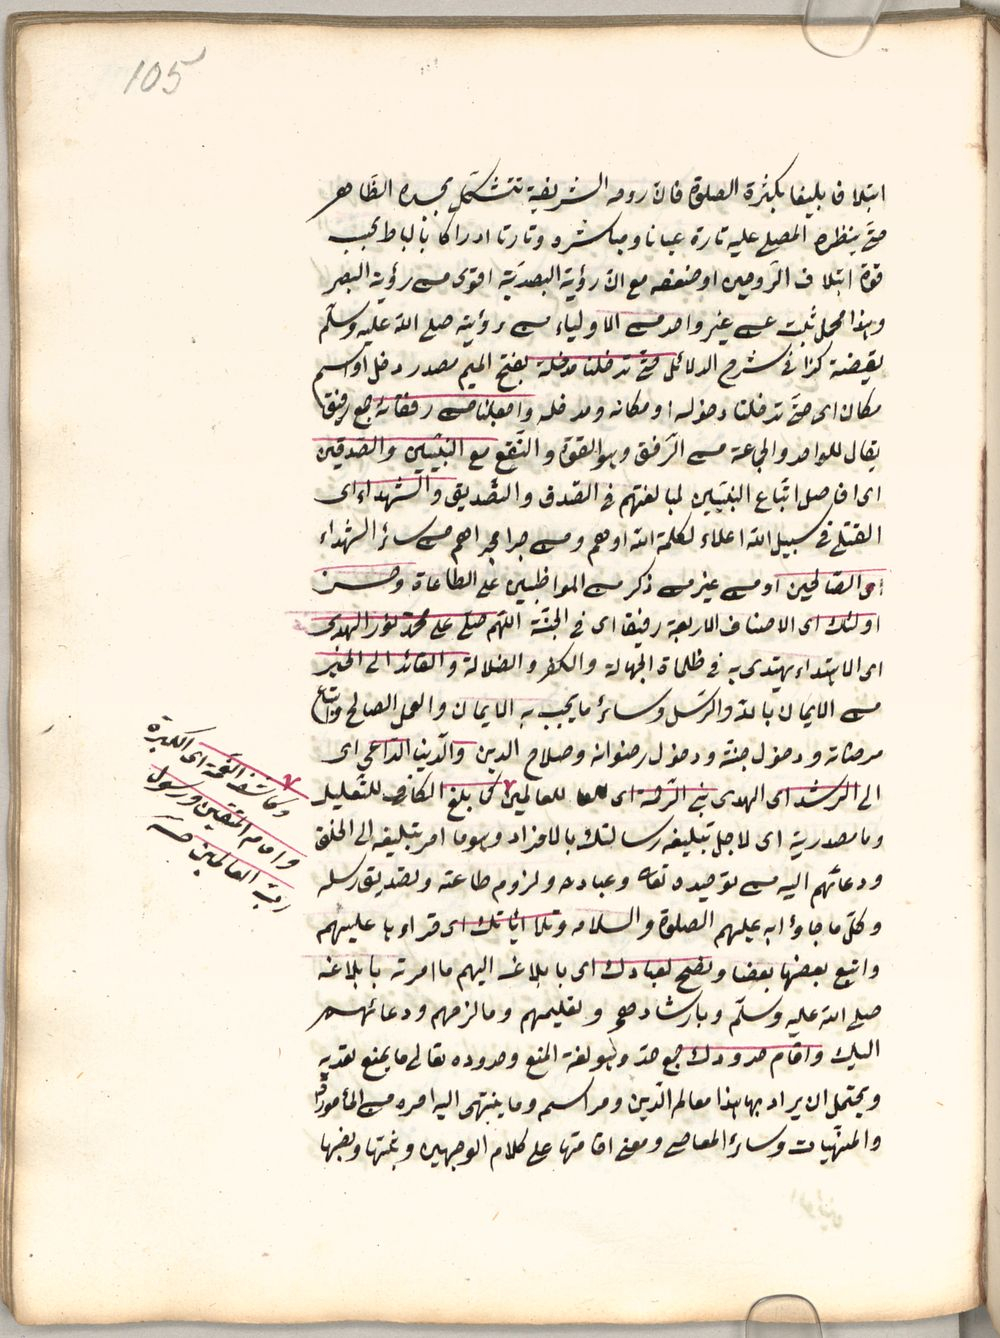 105
ابتلافا بليغا بكثرة الصلوة فان روحه الشريفة تتشكل بجسده الظاهر
حتى ينظره المصلى عليه تارة عيانا ومباشره وتارتا ادراكا بالباطن بحسب
قوة ابتلاف الروحين او ضعفه مع ان رؤية البصرية اقوى من رؤية البصر
وبهذا محمل ثبت عن غير واحد من الاولياء من رؤيته صلى الله عليه وسلم
يقيضة كذا فى شرح الدلائل حتى تدخلنا مدخله بفتح الميم مصدر دخل او اسم
مكان اى حتى تدخلنا دخوله او مكانه ومدخله واجعلنا من رفقائه جمع رفيق
يقال للواحد والجماعة من الرفق وهو القوة والنفع مع النبيين والصديقين
اى افاضل اتباع النبيين لمبالغتهم فى الصدق والتصديق والشهداء اى
القتلى فى سبيل الله اعلاء لكلمة الله او هم ومن جرا مجراهم من سائر الشهداء
والصالحين او من غير من ذكر من المواظبين على الطاعات وحسن
اولئك اى الاصناف الاربعة رفيقا اى فى الجنة اللهم صلى على محمد نور الهدى
اى الاهتداء يهتدى به فى ظلمات الجهالة والكفر والضلالة والقائد الى الخير
من الايمان بالله والرسل وسائر ما يجب به الايمان والعمل الصالح واتباع
مرضاته ودخول جنته ودخول رضوانه وصلاح الدين والدنيا الداعى اى
الى الرشد اى الهدى نبى الرحمة اى للعالمين كما بلغ الكاف للتعليل
وما مصدرية اى لاجل تبليغه رسالتك بالافراد وهو ما امر بتبليغه الى الخلق
ودعائهم اليه من توحيده تعالى وعبادته ولزوم طاعته وتصديق رسله
وكل ما جاؤا به عليهم الصلوة والسلام وتلا اياتك اى قراوبا عليهم
واتبع بعضها بعضا ونصح لعبادك اى بابلاغه اليهم ما امرته بابلاغه
صلى الله عليه وسلم وبارشادهم وتعليمهم وما لزمهم ودعائهم
اليك واقام حدودك جمع حد وهو لغة المنع وحدوده تعالى ما يمنع تعديه
ويحتمل ان يراد بها هذا معالم الدين ومراسم وما ينتهى اليه امره من المأمورات
والمنهيات وسائر المعاصى ومعنى اقامتها على كلام الوجهين وبمتها ونصبها
وكاشف الغمة اى الكبيرة
وامام المتقين ورسول
رب العالمين